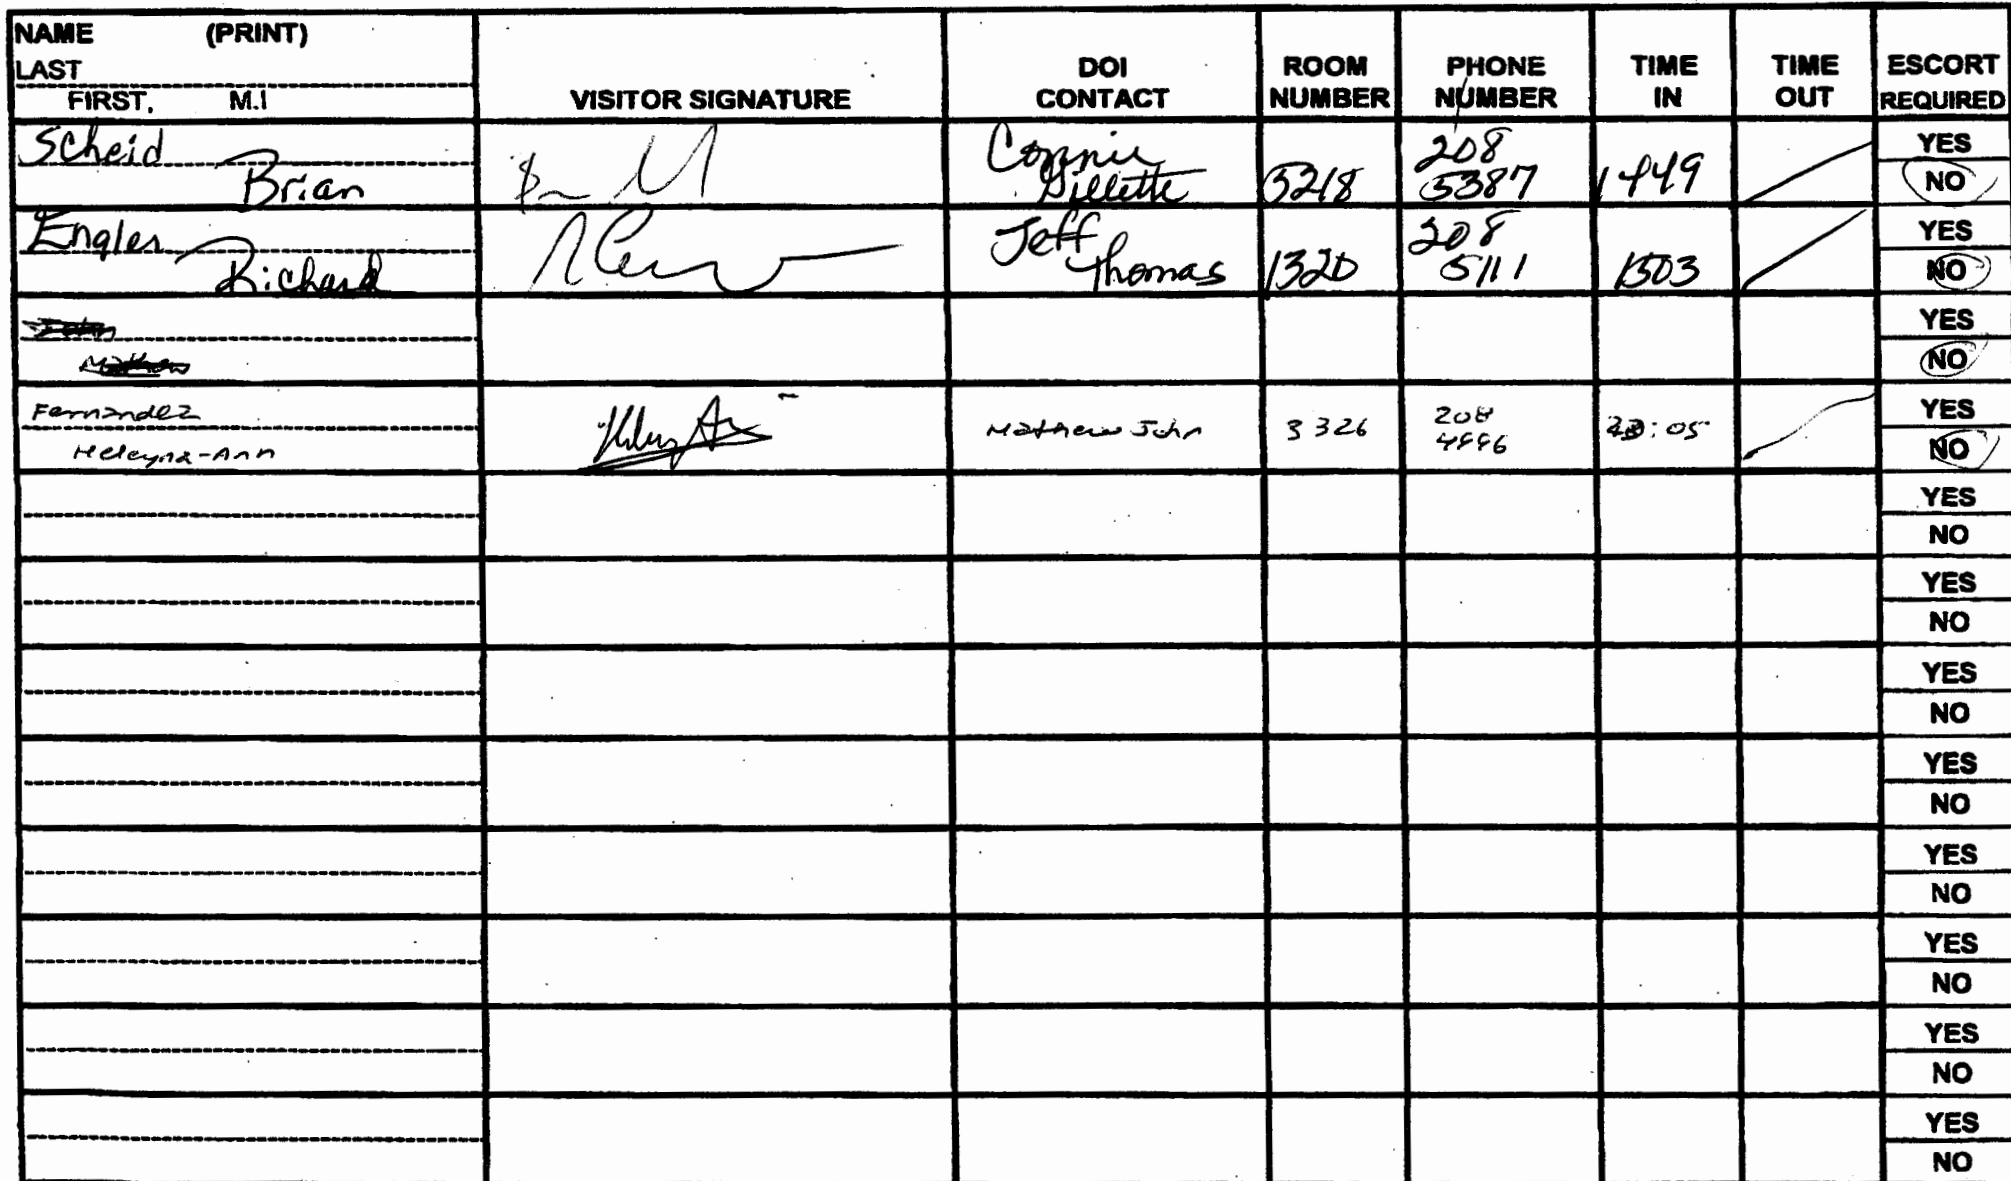 NAME (PRINT)
LAST
FIRST, M.I
VISITOR SIGNATURE
DOI
CONTACT
ROOM
NUMBER
PHONE
NUMBER
TIME
IN
TIME
OUT
ESCORT
REQUIRED
Scheid
Brian
Connie
Gillette
5218
208
5387
1449
YES
NO
Engles
Richard
Jeff
Thomas
1320
208
5111
1503
YES
NO
John
Mathew
YES
NO
Fernandez
Heleyna-Ann
Mathew John
3326
208
:05
YES
NO
YES
NO
YES
NO
YES
NO
YES
NO
YES
NO
YES
NO
YES
NO
YES
NO